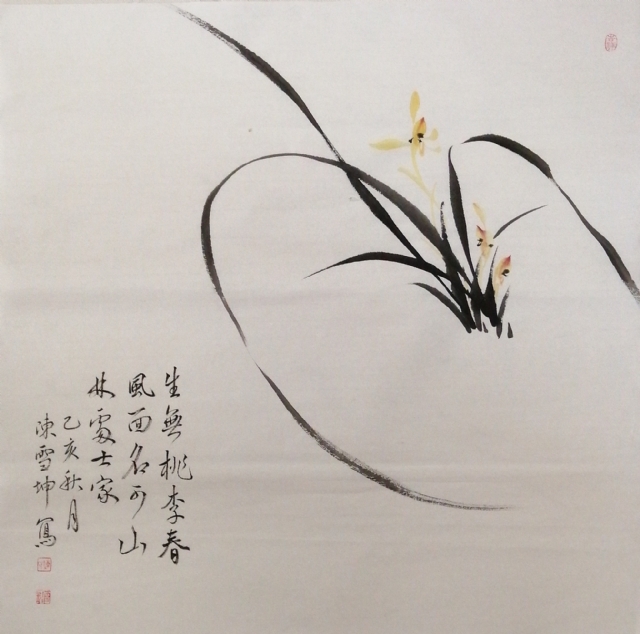 生無桃李春
風面名可山
林處士家
乙亥秋月
陳雪坤寫